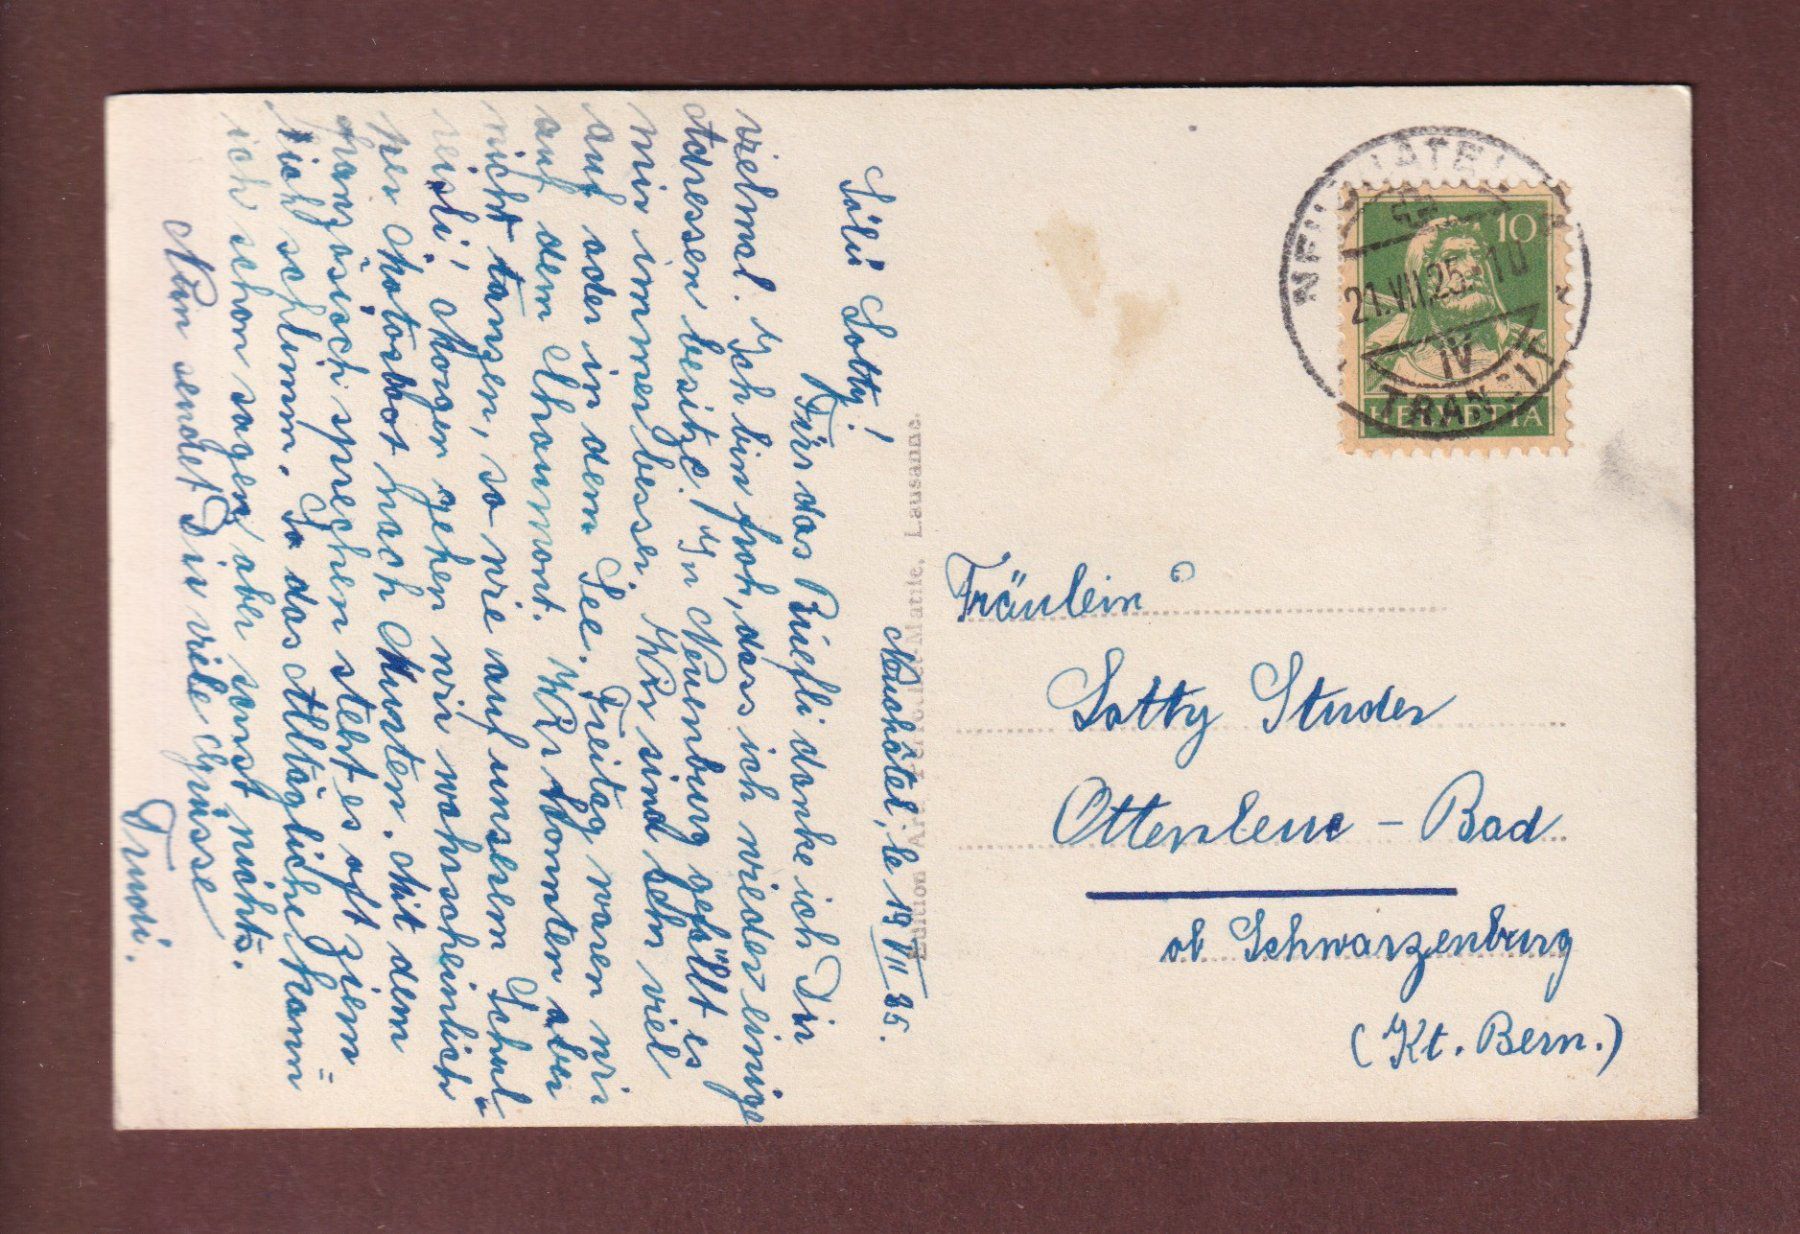 Neuchâtel, le 19/VII 25.
Sälü Lotty!
Für das Briefli danke ich Dir
vielmal. Ich bin froh, dass ich wieder einige
Adressen besitze. In Neuenburg gefällt es
mir immer besser. Wir sind sehr viel
auf oder in dem See. Freitag waren wir
auf dem Chaumont. Wir konnten aber
nicht tanzen, so wie auf unserem Schul-
reisli; Morgen gehen wir wahrscheinlich
per Motorboot nach Murten. Mit dem
französisch sprechen steht es oft ziem=
lich schlimm. So das Alltägliche kann
ich schon sagen, aber sonst nichts.
Nun sendet Dir viele Grüsse
Trudi.
Edition Art. Perrochet-Matile, Lausanne.
NEUCHATEL
21.VII.25.-10
IV
TRANSIT
10
HELVETIA
Fräulein
Lotty Studer
Ottenleue - Bad
ob Schwarzenburg
(Kt. Bern.)